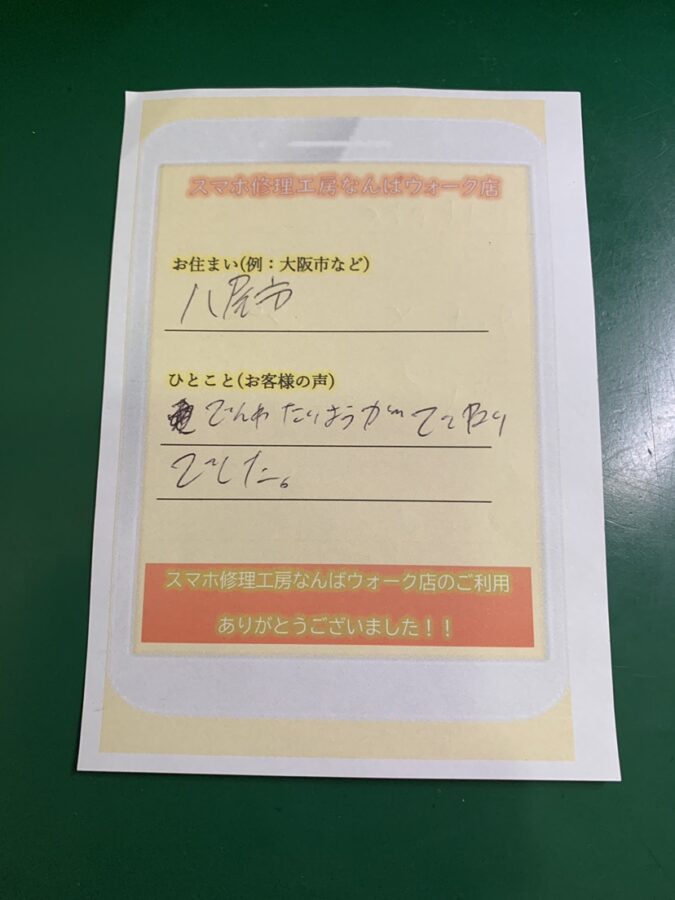 スマホ修理工房なんばウォーク店
お住まい(例：大阪市など)
八尾市
ひとこと(お客様の声)
でんわたいおうがてきかく
でした。
スマホ修理工房なんばウォーク店のご利用
ありがとうございました！！